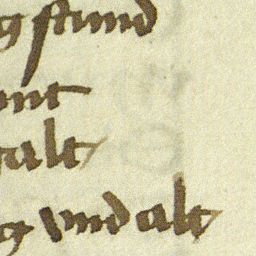 g stund
nt
alt
g vnd alt